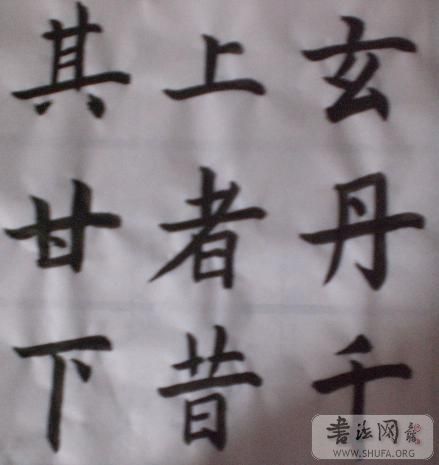 玄丹千
上者昔
其甘下
書法网
WWW.SHUFA.ORG